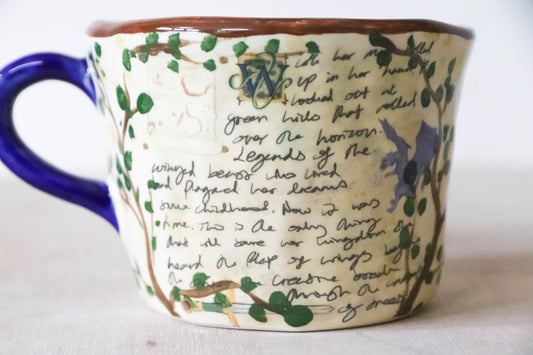 With her map rolled
up in her hand,
looked out at
green hills that rolled
over the horizon.
Legends of the
winged beast who lived
and plagued her dreams
since childhood. Now it was
time. This is the only thing
that will save her kingdom
heard the flap of wings
the creature
through the
of trees